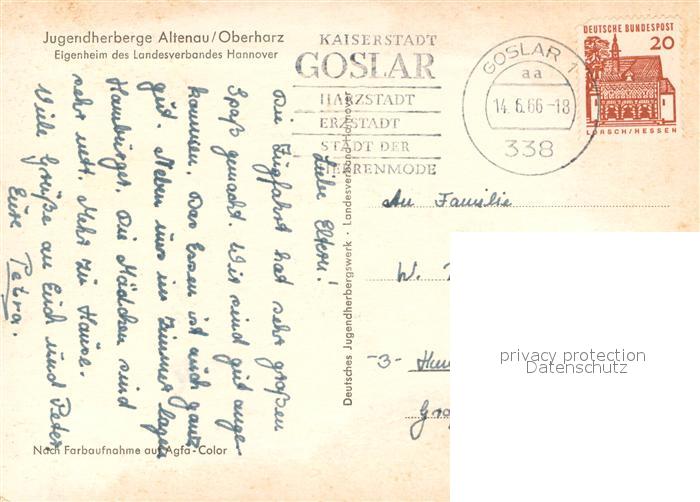 Jugendherberge Altenau/Oberharz
Eigenheim des Landesverbandes Hannover
KAISERSTADT
GOSLAR
HARZSTADT
ERZSTADT
STADT DER
HERRENMODE
GOSLAR 1
aa
14.6.66-18
338
DEUTSCHE BUNDESPOST
20
LORSCH/HESSEN
Liebe Eltern!
Die Zugfahrt hat sehr großen
Spaß gemacht. Wir sind gut ange-
kommen. Das Essen ist auch ganz
gut. Neben uns im Zimmer lagen
Hamburger. Die Mädchen sind
sehr nett. Mehr zu Hause.
Viele Grüße an Euch und Peter
Eure Petra.
Deutsches Jugendherbergswerk · Landesverband Hannover
An Familie
W.
-3-
privacy protection
Datenschutz
Nach Farbaufnahme auf Agfa-Color